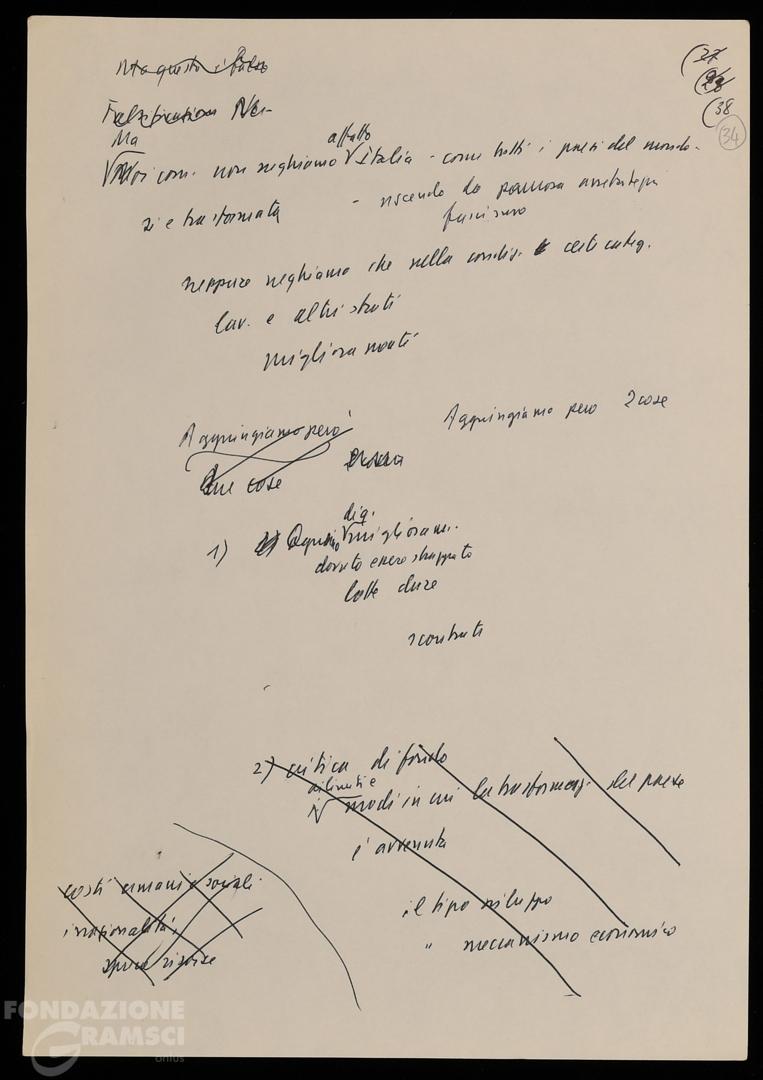 Ma questo è falso
(37
(38
(34)
Falsificazione
Ma
affatto
Noi com. non neghiamo Italia - come tutti i paesi del mondo -
si è trasformata - uscendo da paurosa arretratezza
fascismo
neppure neghiamo che nella condiz. certe categ.
lav. e altri strati
miglioramenti
Aggiungiamo però
Aggiungiamo però 2 cose
due cose
1) Ognuno dig. miglioram.
dovuto essere strappato
lotte dure
scontrati
2) critica di fondo
modi in cui la trasformaz. del paese
è avvenuta
costi umani e sociali
il tipo sviluppo
irrazionalità,
" meccanismo economico
spreco risorse
FONDAZIONE
GRAMSCI
onlus